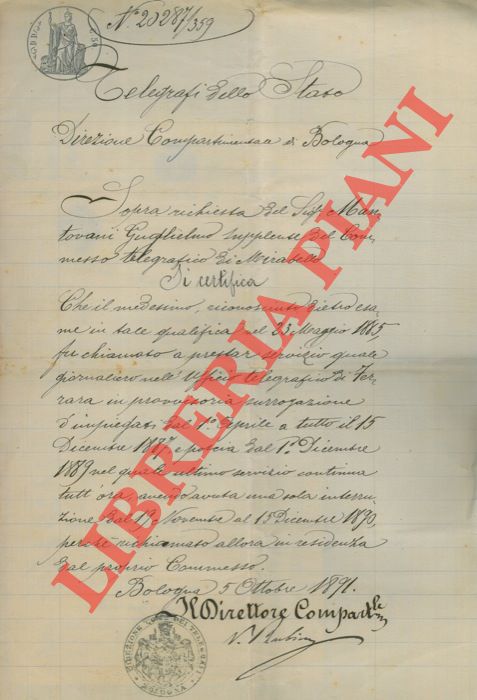 N.° 20287/359
Telegrafi dello Stato
Direzione Compartimentale di Bologna
Sopra richiesta del Sig.r Man-
tovani Guglielmo supplente del Com-
messo telegrafico di Mirabello
Si certifica
Che il medesimo, riconosciuto dietro esa-
me in tale qualifica, nel 23 Maggio 1885,
fu chiamato a prestar servizio quale
giornaliero nell'Ufficio telegrafico di Fer-
rara in provvisoria surrogazione
d'impiegati, dal 1° Aprile a tutto il 15
Dicembre 1887 e poscia dal 1° Dicembre
1889 nel quale ultimo servizio continua
tutt'ora, avendo avuta una sola interru-
zione dal 19 Novembre al 15 Dicembre 1890,
perchè richiamato allora in residenza
dal proprio Commesso.
Bologna 5 Ottobre 1891.
Il Direttore Compart.le
LIBRERIA PIANI
BOLOGNA